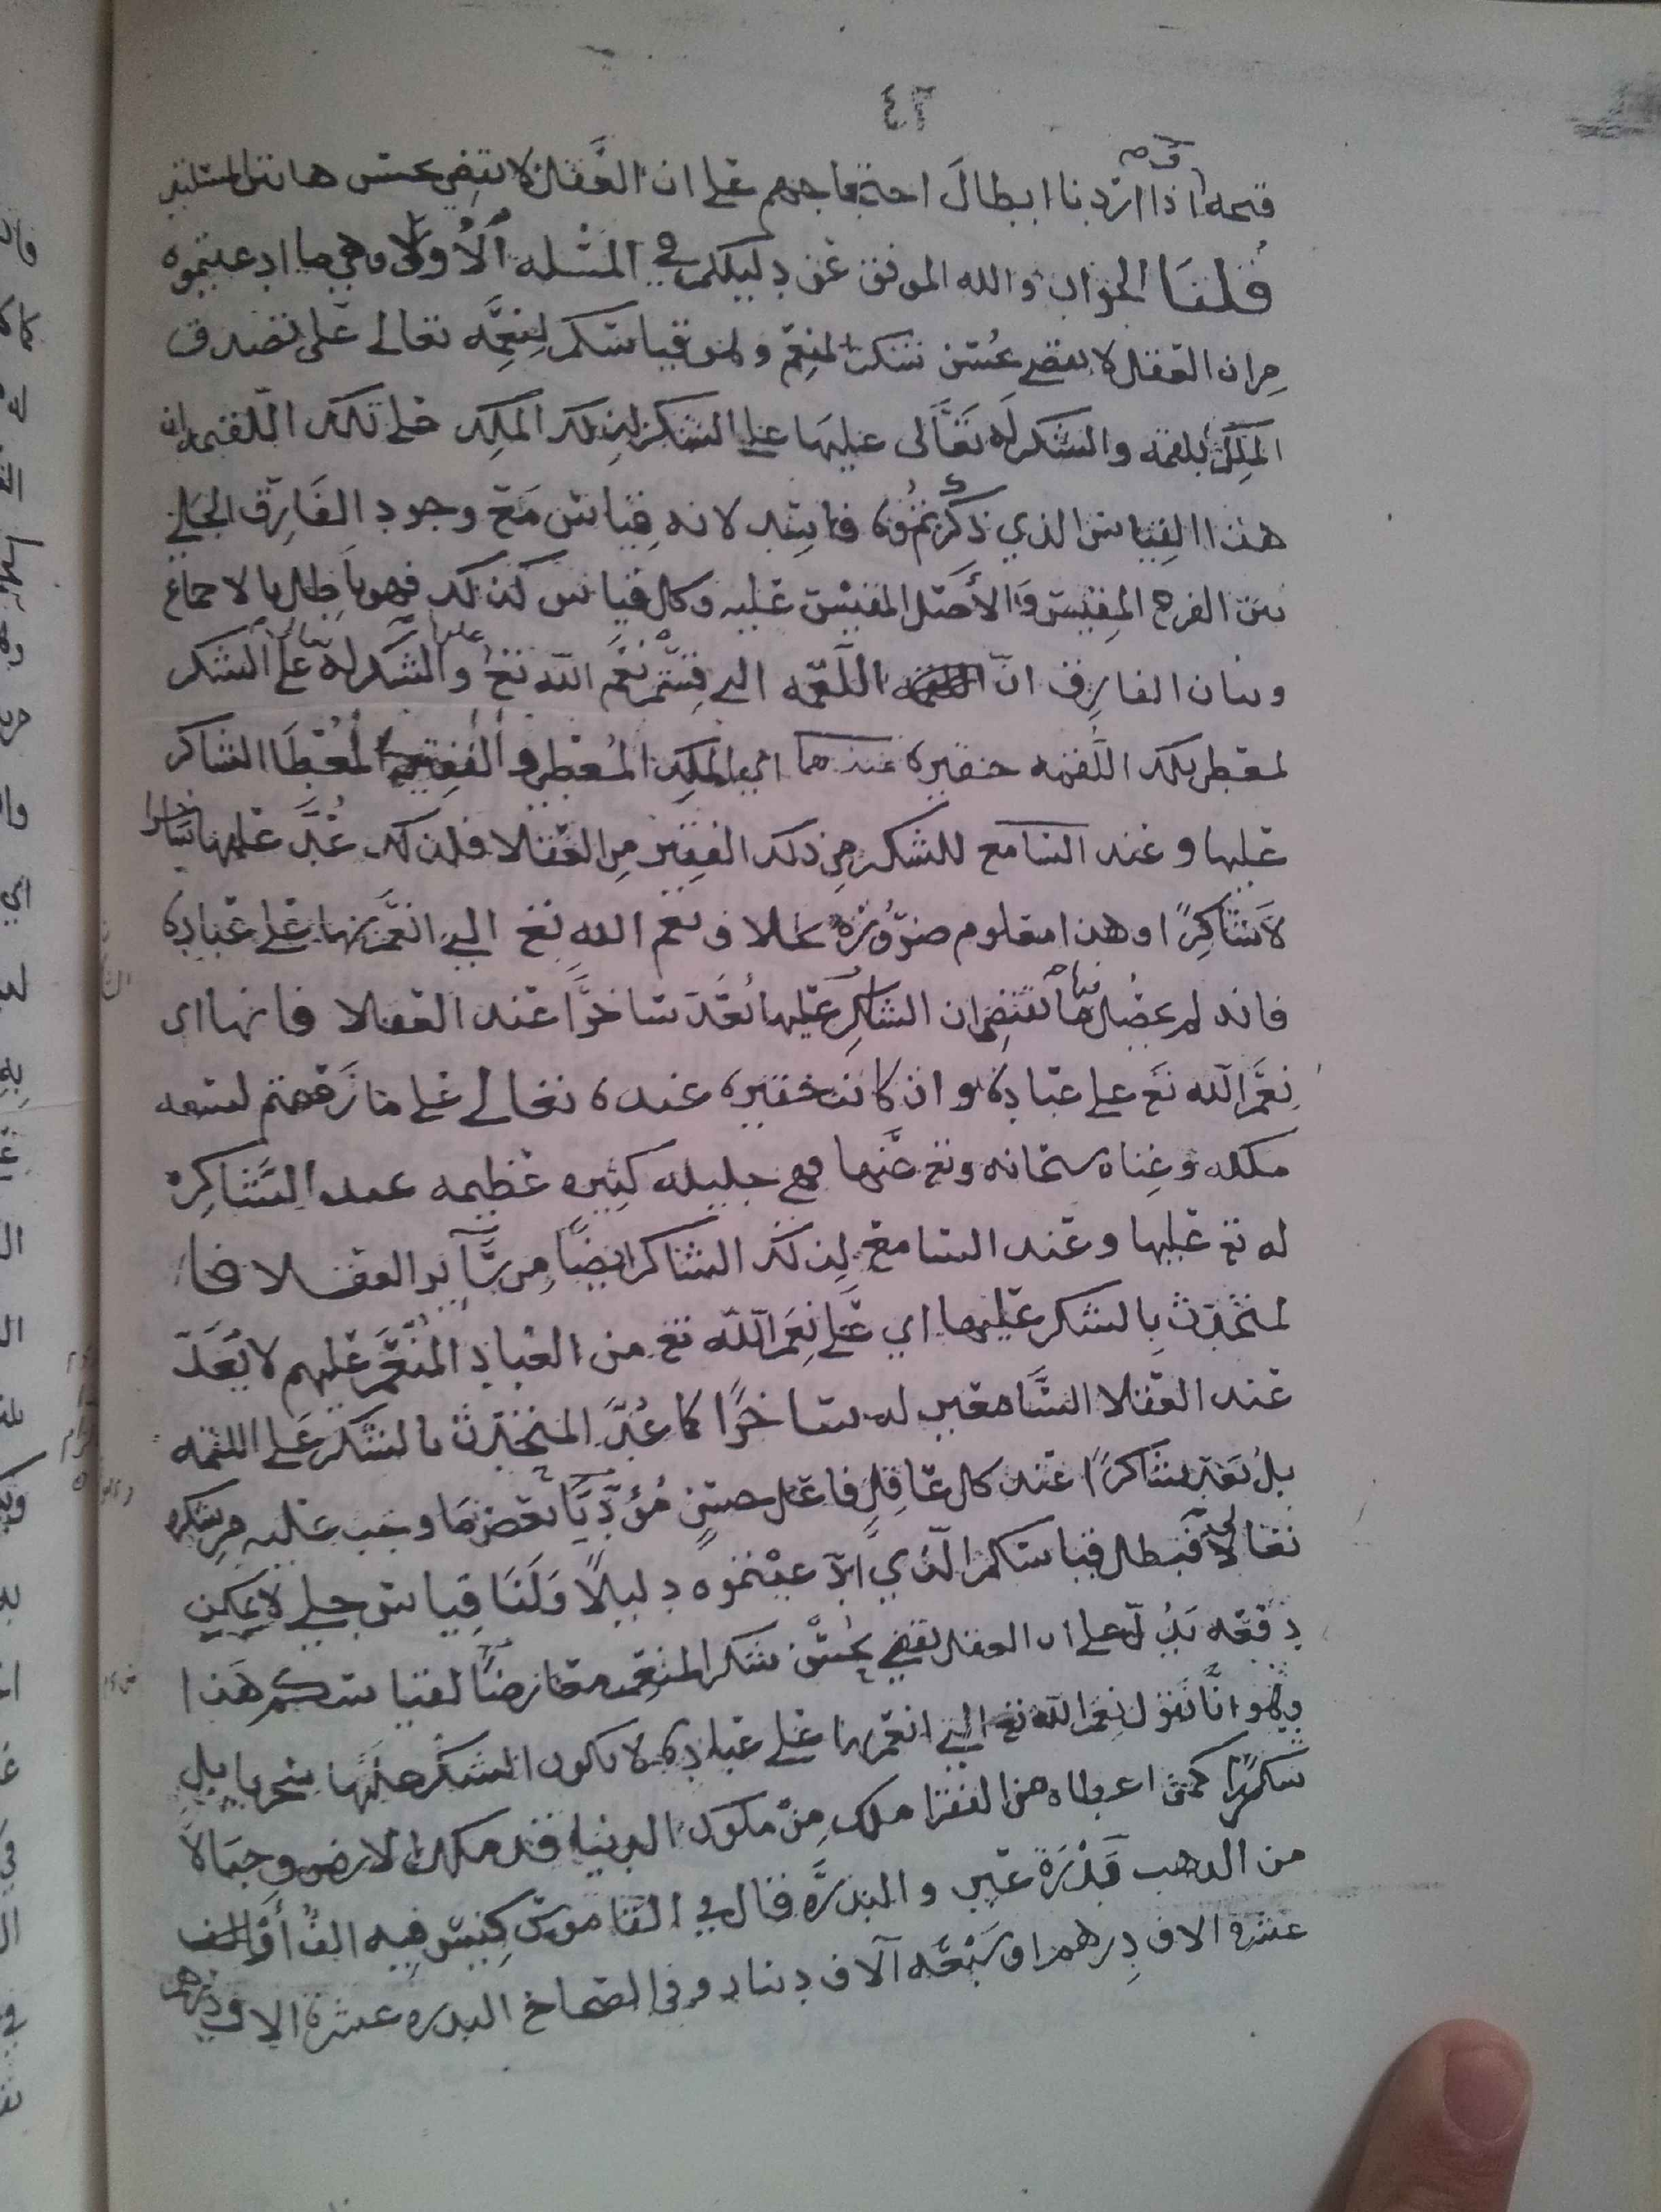 ٤٦
قبحه اذا اردنا ابطال احتجاجهم على ان العقل لا يقضي بحسن هاتين المسئلتين
قلنا الجواب والله الموفق عن دليلكم في المسئلة الأولى وهي ما ادعيتموه
من ان العقل لا يقضي بحسن شكر المنعم ولهو قياسكم لنعمه تعالى على تصدق
الملك بلقمه والشكر له تعالى عليها على الشكر لذلك الملك على تلك اللقمه ان
هذا القياس الذي ذكرتموه فاسد لانه قياس مع وجود الفارق الجلي
بين الفرع المقيس والأصل المقيس عليه وكل قياس كذلك فهو باطل بالاجماع
وبيان الفارق ان اللقمه التي قستم نعم الله تع والشكر له تعالى عليها على الشكر
لمعطي تلك اللقمه حقيره عندهما اي الملك المعطي والفقير المعطا الشاكر
عليها وعند السامع للشكر من ذلك الفقير من العقلا فلذلك عُدَّ عليها ساخرا
لا شاكرًا وهذا معلوم ضرورة بخلاف نعم الله تع التي انعم بها على عباده
فانه لم يحصل فيها ما يقتضي ان الشاكر عليها يُعَدّ ساخرًا عند العقلا فانها اي
نِعَم الله تع على عباده وان كانت حقيره عنده تعالى على ما رزقهم لسعه
ملكه وغناه سبحانه وتع عنها فهي جليله كثيره عظيمه عند الشاكر
له تع عليها وعند السامع لذلك الشاكر ايضًا من سآير العقلا فا
لمتحدث بالشكر عليها اي على نِعَم الله تع من العباد المُنْعَم عليهم لا يُعَدّ
عند العقلا السامعين له ساخرًا كما عُدَّ المتحدث بالشكر على اللقمه
بل يُعَدّ شاكرًا عند كل عاقل فاعل حسنٍ مُؤدِّيًا بعض ما وجب عليه من شكره
تعالى فبطل قياسكم الذي ادعيتموه دليلًا ولنا قياس جلي لا يمكن
دفعه يدُلّ على ان العقل يقضي بحُسْن شكر المنعم معارضًا لقياسكم هذا
وهو انا نقول نِعَم الله تع التي انعم بها على عباده لا يكون الشكر عليها سخريا بل
شكرًا كمن اعطاه من الفقرا ملك مِنْ ملوك الدنيا قد ملك الارض وجبالًا
من الذهب بَدْرَة عين والبدرَة قال في القاموس كيس فيه الفٌ أو
عشرة الاف دِرهم او سَبْعَه آلاف دينار وفي الصحاح البدره عشرة الاف درهم